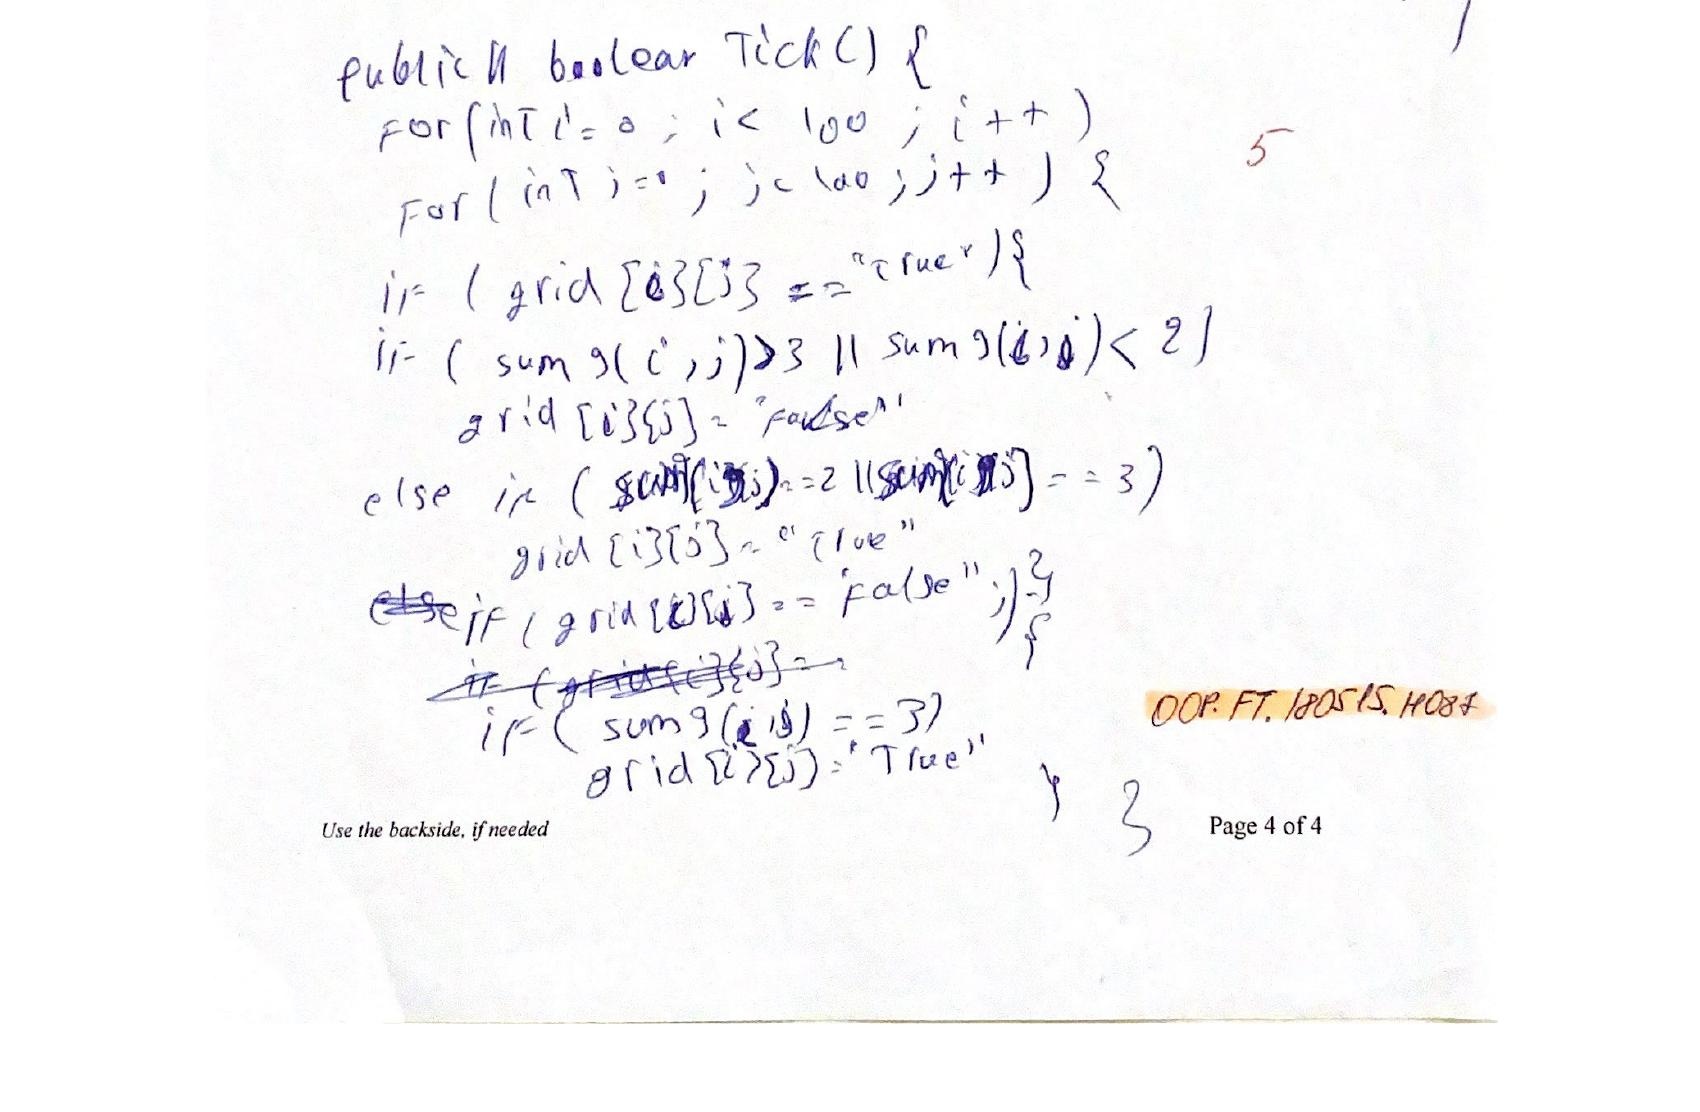 public boolear Tick() {
For(inT i=0 ; i< 100 ; i++ )
For( inT j=0 ; j< 100 ; j++ ) {
5
iF ( grid [i][j] == "True" ) {
iF ( sum9(i,j)>3 || sum9(i,j)< 2)
grid [i][j] = "False"
else iF ( ==2 || == 3)
grid [i][j] = "True"
iF ( grid [i][j] == "False" ;) }
{
iF ( sum9(i,j) == 3)
OOP. FT. 180515. H087
grid [i][j] = "True"
} }
Use the backside, if needed Page 4 of 4